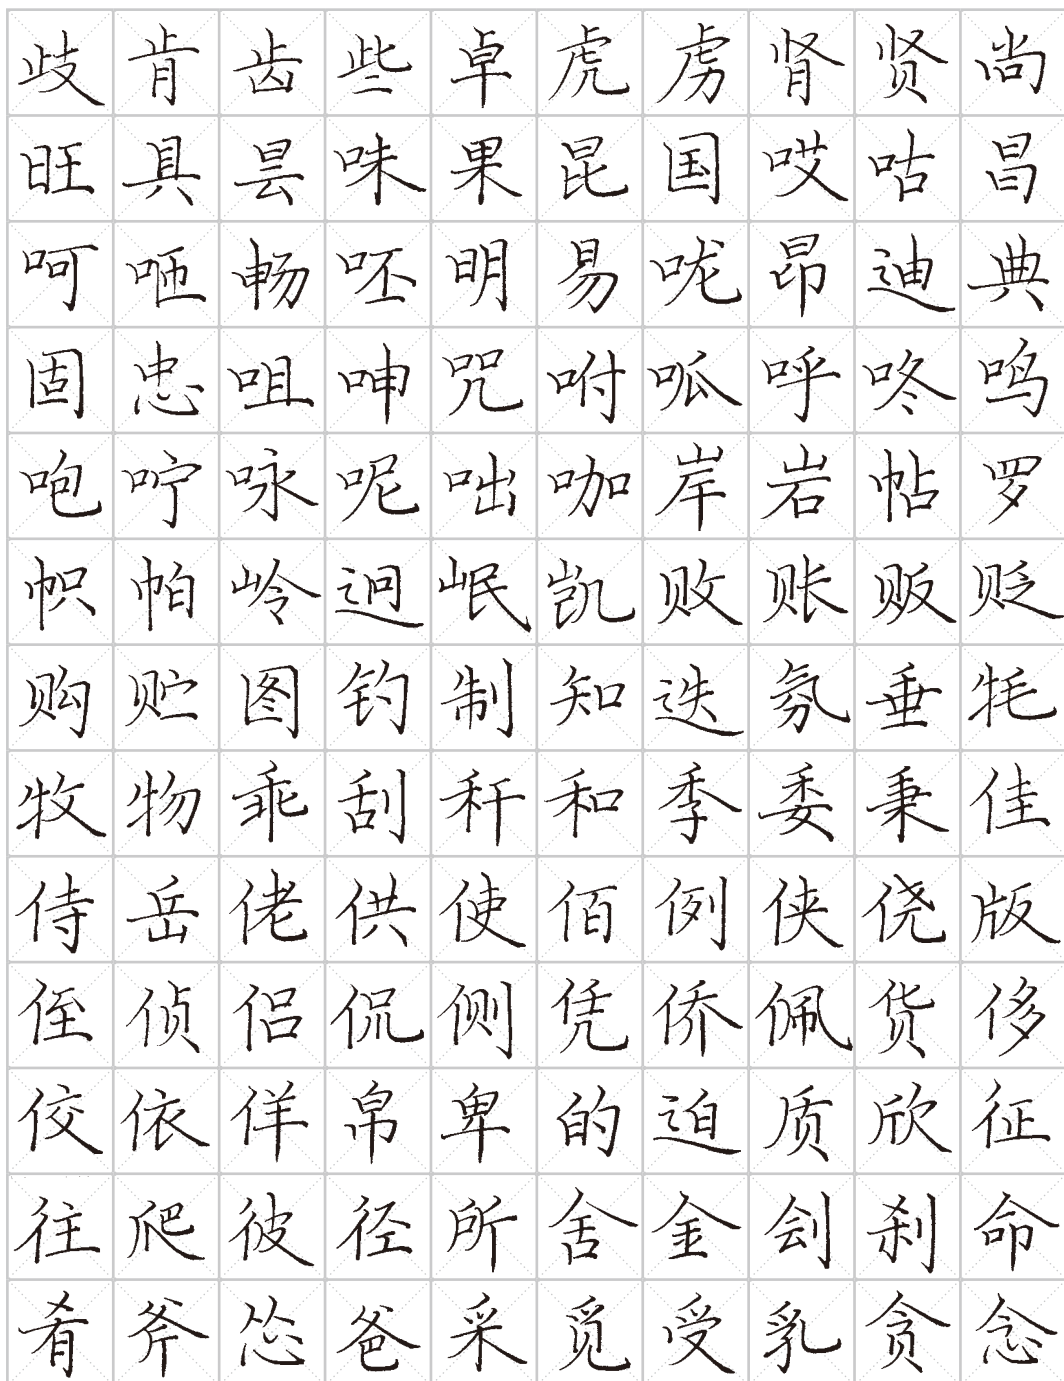 歧肯齿些卓虎虏肾贤尚
旺具昙味果昆国哎咕昌
呵咂畅呸明易咙昂迪典
固忠咀呻咒咐呱呼咚鸣
咆咛咏呢咄咖岸岩帖罗
帜帕岭迥岷凯败账贩贬
购贮图钓制知迭氛垂牦
牧物乖刮秆和季委秉佳
侍岳佬供使佰例侠侥版
侄侦侣侃侧凭侨佩货侈
佼依佯帛卑的迫质欣征
往爬彼径所舍金刽刹命
肴斧怂爸采觅受乳贪念